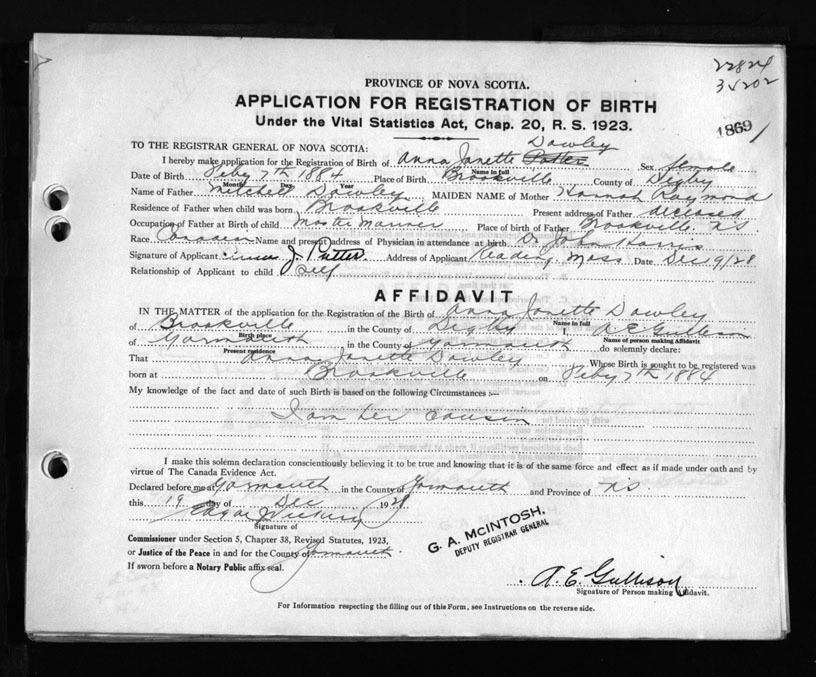 22824
35202
PROVINCE OF NOVA SCOTIA.
APPLICATION FOR REGISTRATION OF BIRTH
Under the Vital Statistics Act, Chap. 20, R. S. 1923.
1869
TO THE REGISTRAR GENERAL OF NOVA SCOTIA:
Dowley
I hereby make application for the Registration of Birth of Anna Janette Potter Sex female
Name in full
Date of Birth Feby 7th 1884 Place of Birth Brookville County of Digby
Month Day Year
Name of Father Mitchell Dowley MAIDEN NAME of Mother Hannah Raymond
Residence of Father when child was born Brookville Present address of Father deceased
Occupation of Father at Birth of child Master Mariner Place of birth of Father Brookville NS
Race Name and present address of Physician in attendance at birth Dr John Harris
Signature of Applicant J. Potter Address of Applicant Reading Mass Date Dec 9/28
Relationship of Applicant to child self
AFFIDAVIT
IN THE MATTER of the application for the Registration of the Birth of Anna Janette Dowley
Name in full
of Brookville in the County of Digby I, A E Gullison
Birth place Name of person making Affidavit
of Yarmouth in the County of Yarmouth do solemnly declare:
Present residence
That Anna Janette Dowley Whose Birth is sought to be registered was
born at Brookville on Feby 7th 1884
My knowledge of the fact and date of such Birth is based on the following Circumstances :—
I am her cousin
I make this solemn declaration conscientiously believing it to be true and knowing that it is of the same force and effect as if made under oath and by
virtue of The Canada Evidence Act.
Declared before me at Yarmouth in the County of Yarmouth and Province of NS.
this 19 day of Dec 192
Signature of
Commissioner under Section 5, Chapter 38, Revised Statutes, 1923,
or Justice of the Peace in and for the County of Yarmouth.
If sworn before a Notary Public affix seal.
G. A. McINTOSH.
DEPUTY REGISTRAR GENERAL
A. E. Gullison
Signature of Person making Affidavit.
For Information respecting the filling out of this Form, see Instructions on the reverse side.